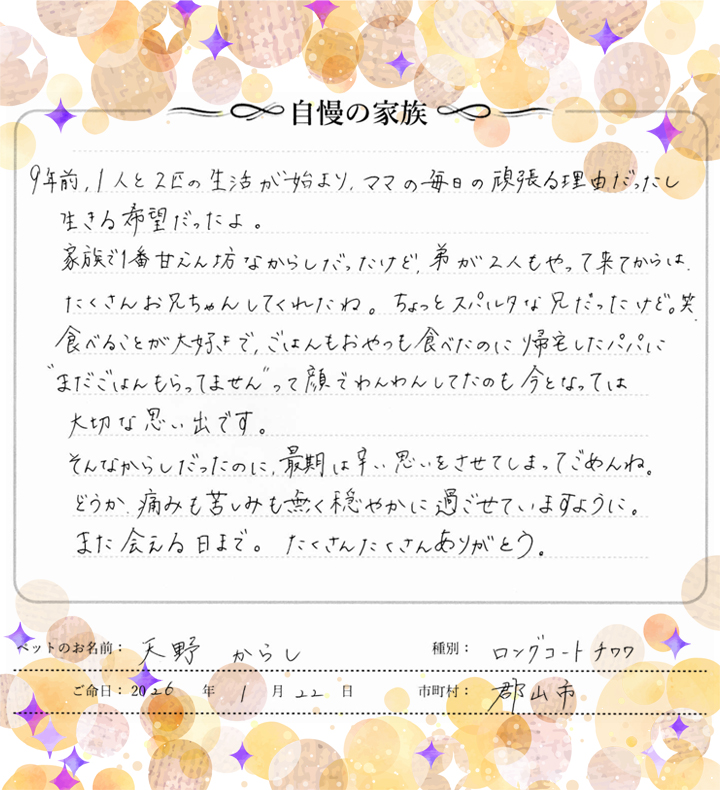 自慢の家族
9年前、1人と2匹の生活が始まり、ママの毎日の頑張る理由だったし
生きる希望だったよ。
家族で1番甘えん坊なからしだったけど、弟が2人もやって来てからは、
たくさんお兄ちゃんしてくれたね。ちょっとスパルタな兄だったけど。笑
食べることが大好きで、ごはんもおやつも食べたのに帰宅したパパに
"まだごはんもらってません"って顔でわんわんしてたのも今となっては
大切な思い出です。
そんなからしだったのに、最期は辛い思いをさせてしまってごめんね。
どうか、痛みも苦しみも無く穏やかに過ごせていますように。
また会える日まで。 たくさんたくさんありがとう。
ペットのお名前： 天野 からし 種別： ロングコートチワワ
ご命日： 2026 年 1 月 22 日 市町村： 郡山市